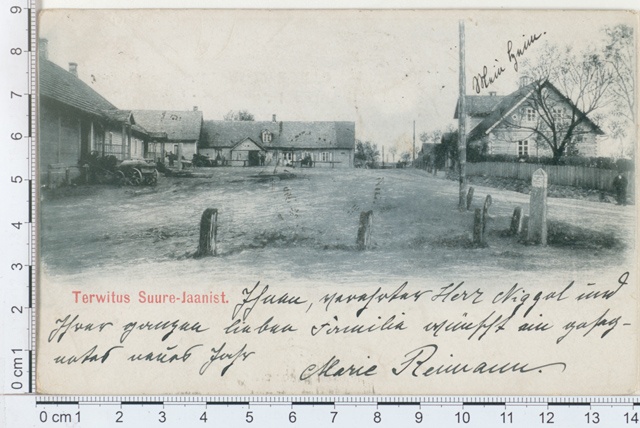 Mein Heim.
Terwitus Suure-Jaanist.
Ihnen, verehrter Herr Niggol und
Ihrer ganzen lieben Familie wünscht ein geseg-
netes neues Jahr
Marie Reimann.
0 cm 1 2 3 4 5 6 7 8 9
0 cm 1 2 3 4 5 6 7 8 9 10 11 12 13 14